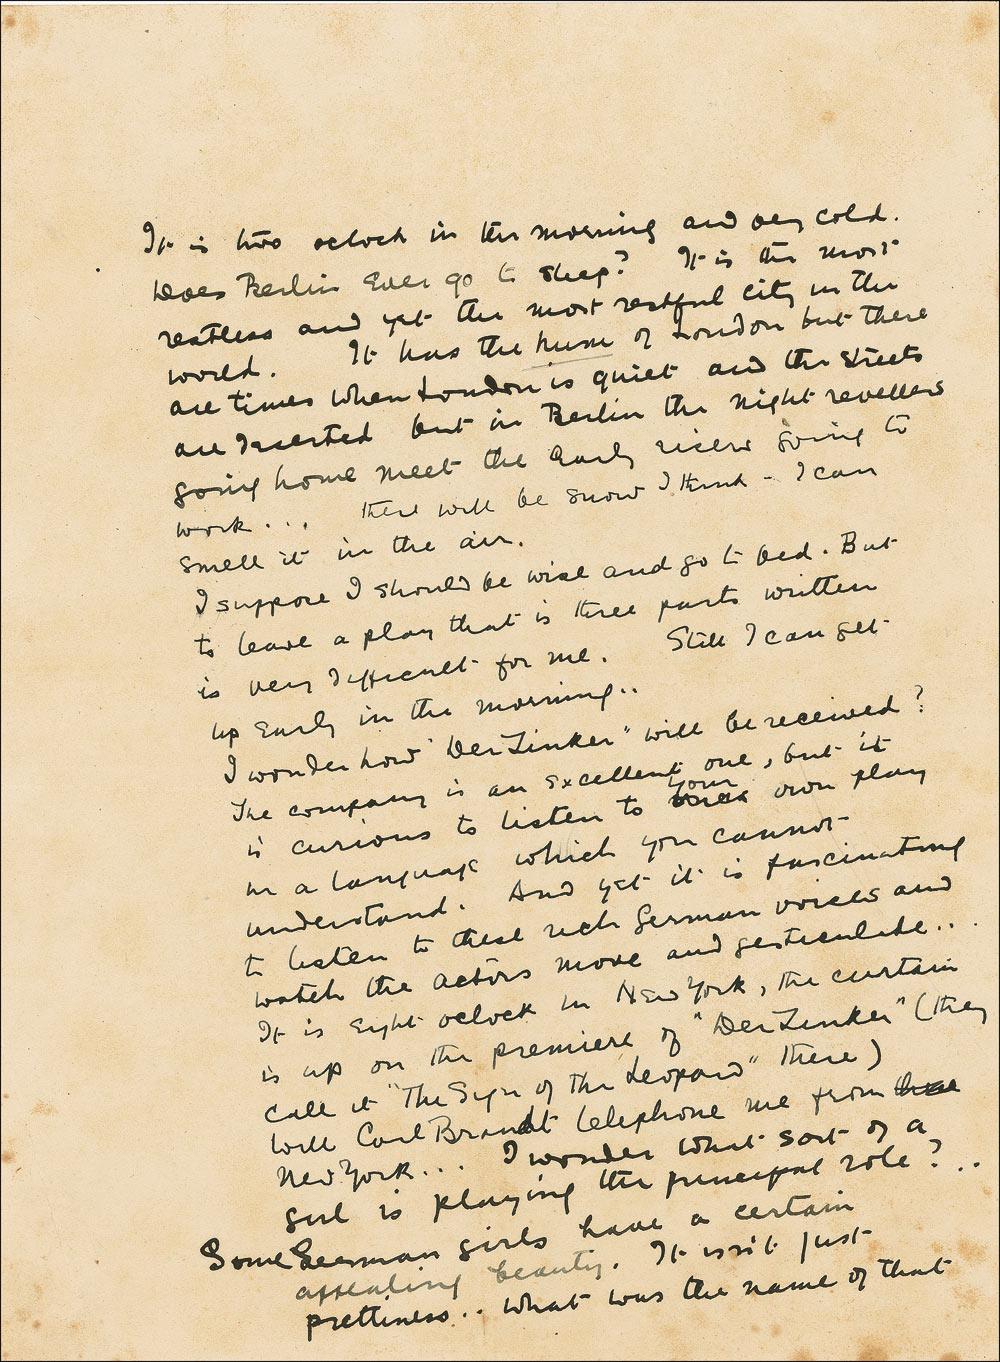 It is two oclock in the morning and very cold.
Does Berlin ever go to sleep? It is the most
restless and yet the most restful city in the
world. It has the hum of London but there
are times when London is quiet and the streets
are deserted but in Berlin the night revellers
going home meet the early risers going to
work... there will be snow I think - I can
smell it in the air.
I suppose I should be wise and go to bed. But
to leave a play that is three parts written
is very difficult for me. Still I can get
up early in the morning..
I wonder how "Der Zinker" will be received?
The company is an excellent one, but it
is curious to listen to your own play
in a language which you cannot
understand. And yet it is fascinating
to listen to these rich German voices and
watch the actors move and gesticulate...
It is eight oclock in New York, the curtain
is up on the premiere of "Der Zinker" (they
call it "The Sign of the Leopard" there)
Will Carl Brandt telephone me from
New York... I wonder what sort of a
girl is playing the principal role?..
Some German girls have a certain
appealing beauty. It isn't just
prettiness.. What was the name of that